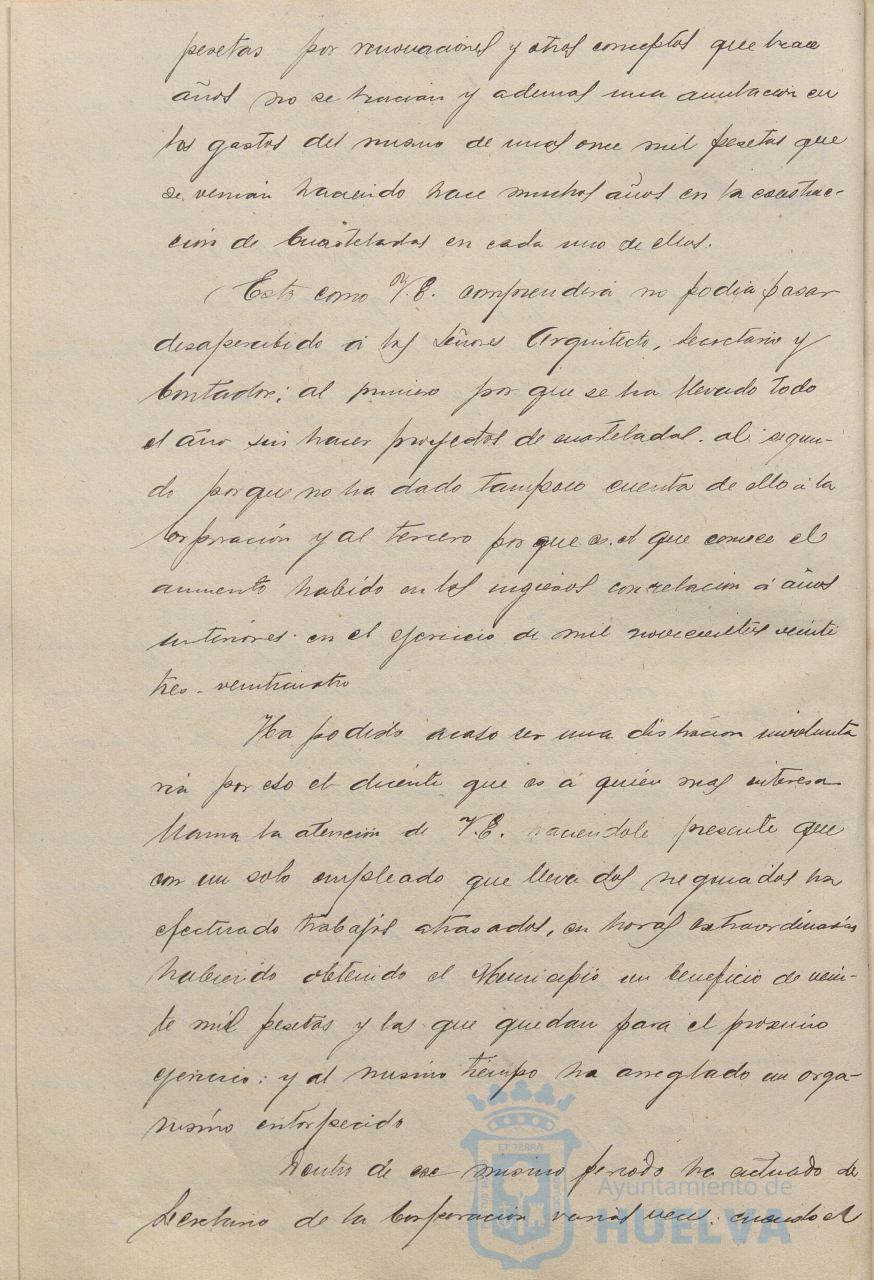 pesetas por renovaciones y otros conceptos que hace
años no se hacian y ademas una anulacion en
los gastos del mismo de unas once mil pesetas que
se venian haciendo hace muchos años en la construc-
ción de Cuarteladas en cada uno de ellos.
Esto como V.E. comprenderá no podia pasar
desapercibido á los Señores Arquitecto, Secretario y
Contador; al primero por que se ha llevado todo
el año sin hacer proyectos de cuarteladas. al segun-
do porque no ha dado tampoco cuenta de ello á la
Corporación y al tercero por que es el que conoce el
aumento habido en los ingresos con relacion á años
anteriores en el ejercicio de mil novecientos veinte
tres-veinticuatro
Ha podido acaso ser una distracion involunta
ria por eso el dicente que es á quien mas interesa
llama la atencion de V.E. haciendole presente que
con un solo empleado que lleva dos negociados ha
efectuado trabajos atrasados, en horas extraordinarias
habiendo obtenido el Municipio un beneficio de vein-
te mil pesetas y las que quedan para el proximo
ejercicio: y al mismo tiempo ha arreglado un orga-
nismo entorpecido
Dentro de ese mismo periodo ha actuado de
Secretario de la Corporacion varias veces cuando el
ET TERRA
Ayuntamiento de
HUELVA